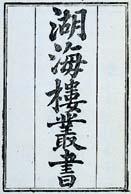 湖海樓叢書